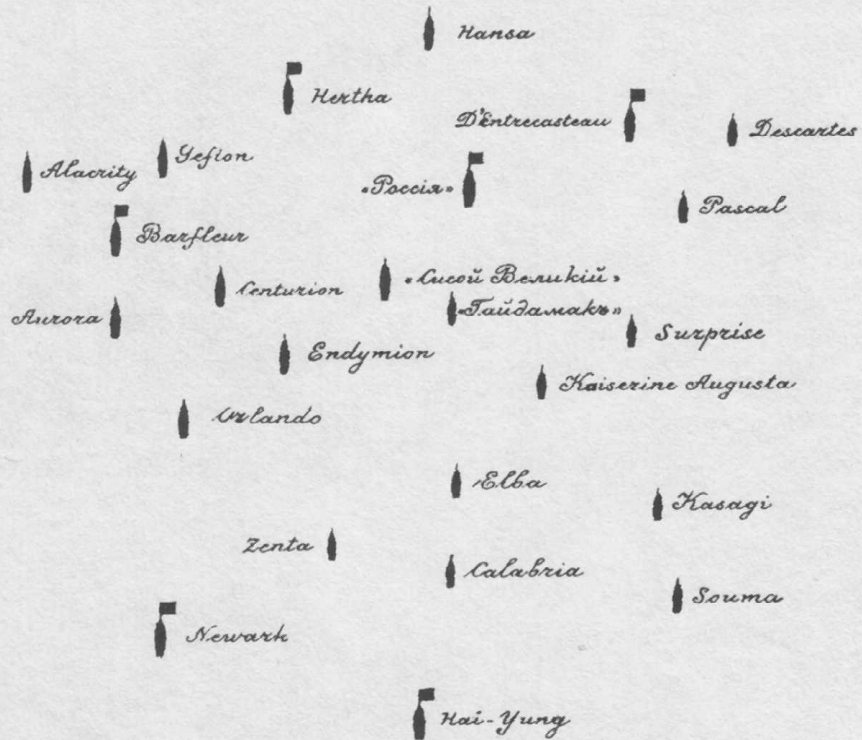 Hansa
Hertha
D'Entrecasteau
Descartes
Alacrity
Gefion
«Россія»
Pascal
Barfleur
Centurion
«Сисой Великій»
Aurora
«Гайдамакъ»
Surprise
Endymion
Kaiserine Augusta
Orlando
Elba
Kasagi
Zenta
Calabria
Souma
Newark
Hai-Yung